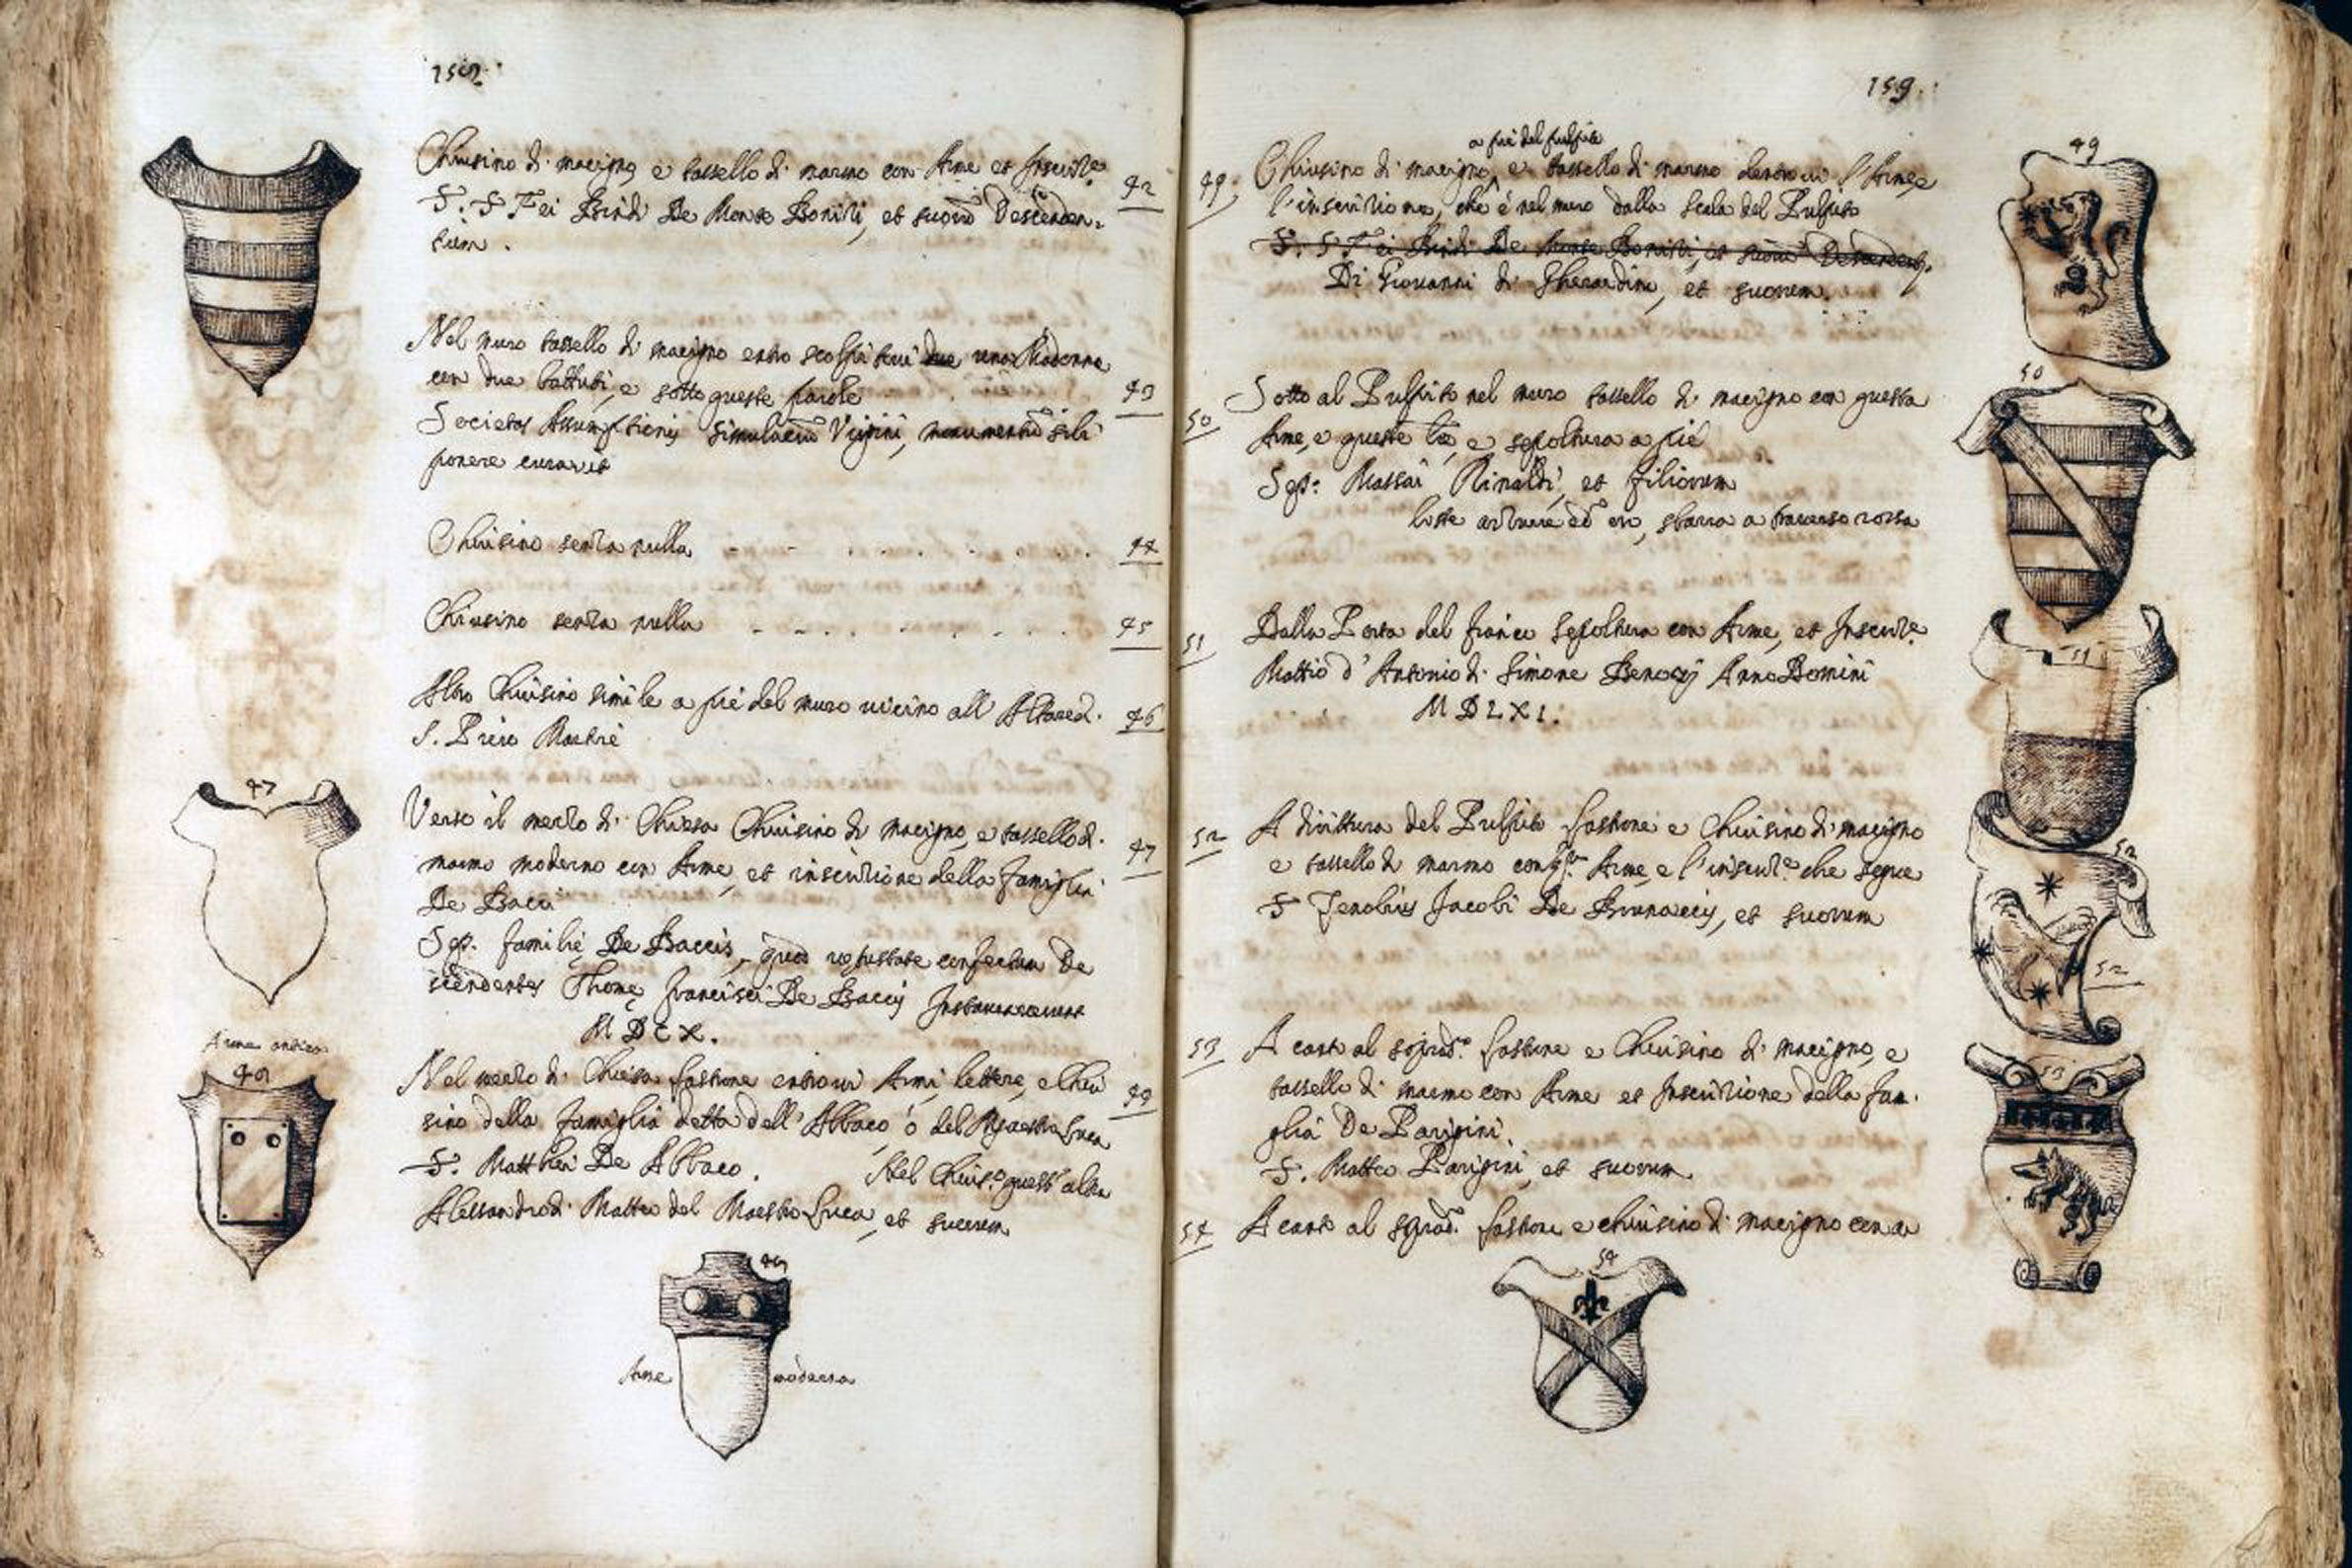 158.
Chiusino di macigno e tassello di marmo con Arme et Inscriz.e
42
S. S Fei Bindi De Monte Boniti, et suorũ Descenden-
tium.
Nel muro tassello di macigno entro scolpitevi due una Madonna
con due battuti, e sotto queste parole
43
Societas Assumptionis simulacrũ Virginis, monumentũ sibi
ponere curavit
Chiusino senza nulla
44
Chiusino senza nulla
45
Altro Chiusino simile a piè del muro vicino all' Altare di
46
S. Piero Martire
47
Verso il mezzo di Chiesa Chiusino di macigno, e tassello di
marmo moderno con Arme, et inscrizione della famiglia
47
De Bacci
Sep. familię De Baccis, quod vetustate confectum De
scendentes Thomę Francisci De Baccis Instauraverunt
MDCX.
Arme antica
48
Nel mezzo di Chiesa lastrone entrovi Armi, lettere, e Chiu
48
sino della famiglia detta dell' Abbaco ò del Maestro Luca
S. Matthei De Abbaco. Nel Chius.o quest' altra
Alessandro di Matteo del Maestro Luca, et suorum
48
Arme moderna
159.
49
a piè del pulpito
49. Chiusino di macigno, e tassello di marmo dentrovi l'Arme, e
l'inscrizione, che è nel muro dalla scala del Pulpito
S. S Fei Bindi De Monte Boniti, et suorũ Descendent.
Di Giovanni di Gherardino, et suorum.
50
50 Sotto al Pulpito nel muro tassello di macigno con questa
Arme, e queste lr̃e, e sepoltura a piè
Sep: Massai Rinaldi, et filiorum
liste azzurre ed oro, sbarra a traverso rossa
51
51 Dalla Porta del fianco sepoltura con Arme, et Inscriz.e
Mattio d' Antonio di Simone Benozii Anno Domini
MDLXI.
52
52 A dirittura del Pulpito lastrone e Chiusino di macigno
e tassello di marmo con q.ta Arme, e l'inscriz.e che segue
S Zenobius Jacobi De Brunaccis, et suorum
52
53
53 A canto al soprad.o lastrone e Chiusino di macigno, e
tassello di marmo con Arme et Inscrizione della fam.
glia De Parigini.
S. Matteo Parigini, et suorum
54 A canto al sprad.o lastrone e chiusino di macigno con a
54